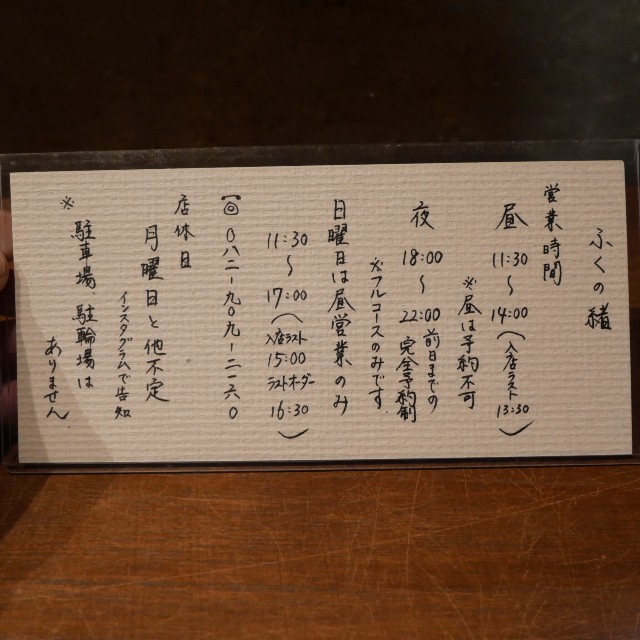 ふくの緒
営業時間
昼 11:30〜14:00(入店ラスト13:30)
※昼は予約不可
夜 18:00〜22:00 前日までの完全予約制
※フルコースのみです
日曜日は昼営業のみ
11:30〜17:00(入店ラスト15:00 ラストオーダー16:30)
☎〇八二-九〇九-二一六〇
店休日
月曜日と他不定
インスタグラムで告知
※駐車場 駐輪場は
ありません